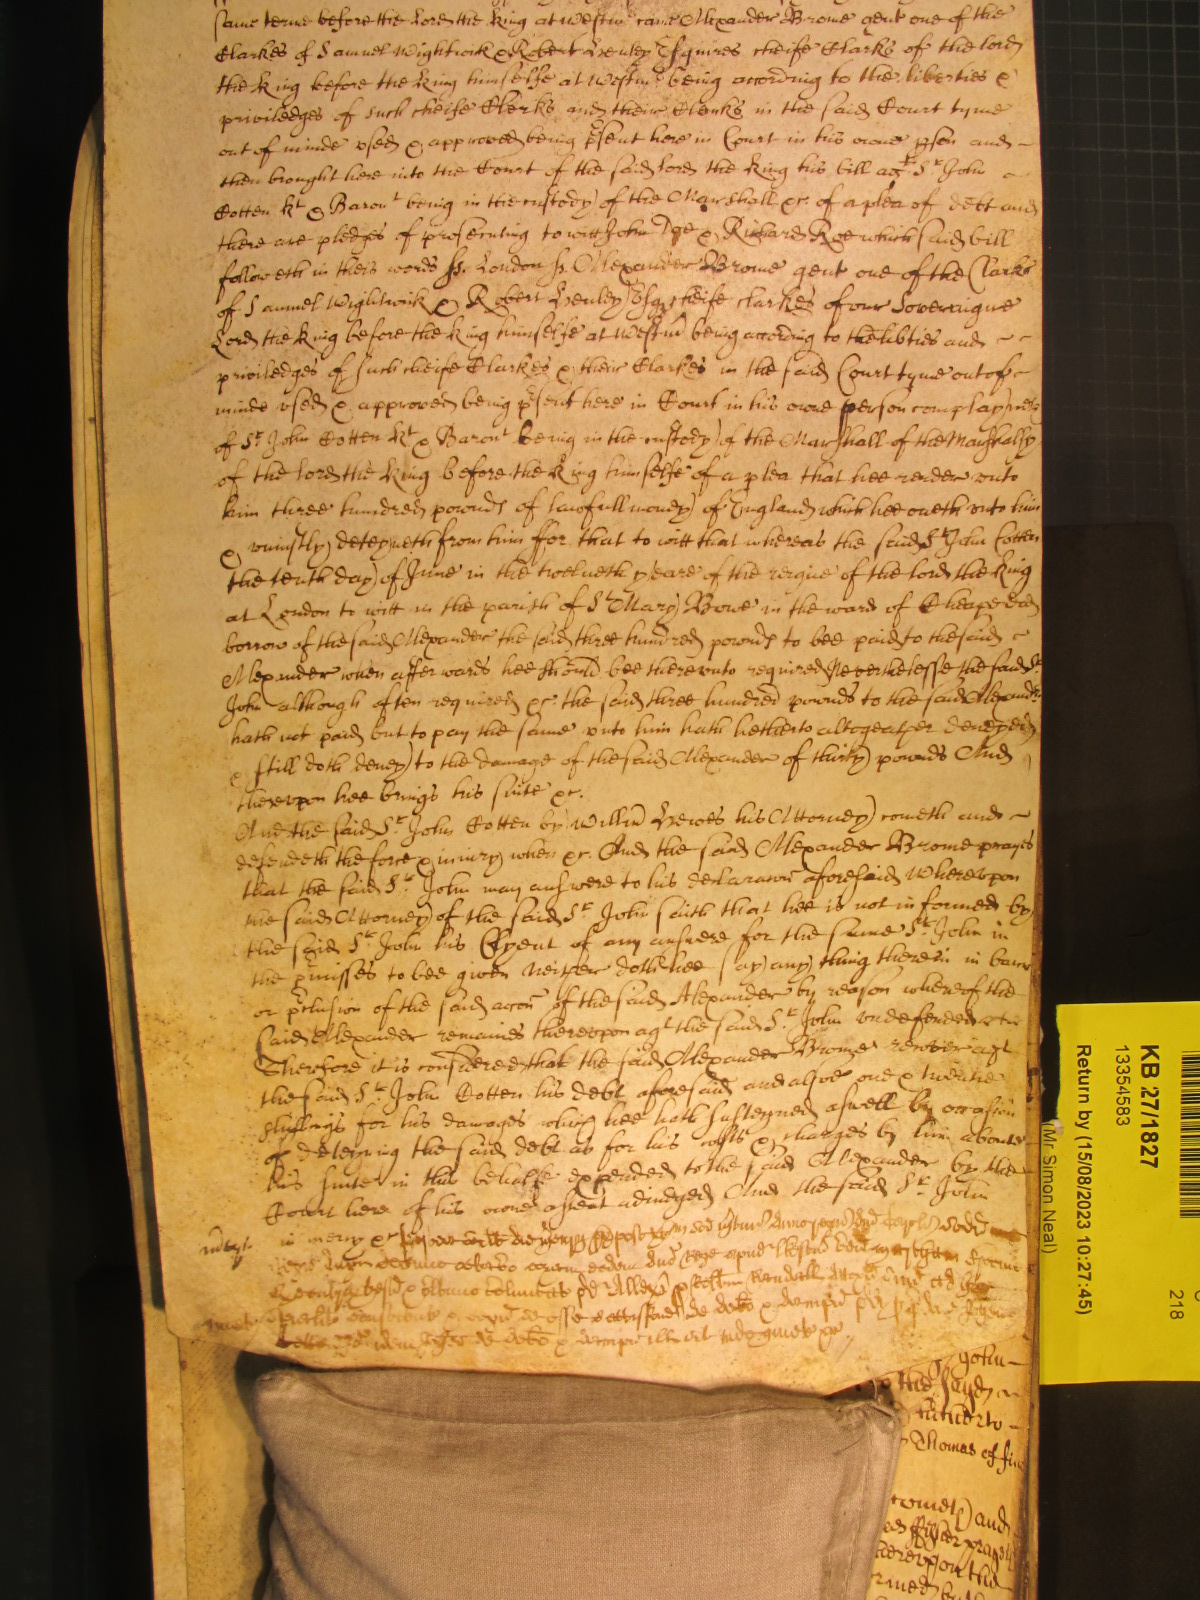 same terme before the Lord the King at Westm came Alexander Brome gent one of the
Clarkes of Samuel Wightwick & Robert Henley Esquires cheife Clarks of the lord
the King before the King himselfe at Westm being according to the liberties &
priviledges of such cheife Clerks and their Clerks in the said Court tyme
out of minde vsed & approved being psent here in Court in his owne pson and
then brought here into the Court of the said lord the King his bill agt Sr John
Cotten Kt & Baront being in the custody of the Marshall &c. of a plea of debt and
there are pledges of prosecuting to witt John Doe & Richard Roe which said bill
followeth in theis words ss. London ss. Alexander Brome gent one of the Clarks
of Samuel Wightwick & Robert Henley Esqs cheife clarkes of our Soveraigne
Lord the King before the King himselfe at Westm being according to the libties and
priviledges of such cheife Clarkes & their Clarkes in the said Court tyme out of
minde vsed & approved being psent here in Court in his owne person complayneth
of Sr John Cotten Kt & Baront being in the custody of the Marshall of the Marshalsy
of the lord the King before the King himselfe of a plea that hee render vnto
him three hundred pownds of lawfull money of England which hee oweth vnto him
& vniustly deteyneth from him ffor that to witt that whereas the said Sr John Cotten
the tenth day of June in the twelueth yeare of the reigne of the lord the King
at London to witt in the parish of St Mary Bowe in the ward of Cheape did
borrow of the said Alexander the said three hundred pownds to bee paid to the said
Alexander when afterwards hee should bee therevnto required Neverthelesse the said Sr
John although often required &c. the said three hundred pownds to the said Alexander
hath not paid but to pay the same vnto him hath hitherto altogeather denyed
& still doth deney to the damage of the said Alexander of thirty pownds And
therevpon hee brings his suite &c.
And the said Sr John Cotten by Willm Hewes his Attorney cometh and
defendeth the force & iniury when &c. And the said Alexander Brome prayes
that the said Sr John may answere to his declaracon aforesaid Wherevpon
the said Attorney of the said Sr John saith that hee is not informed by
the said Sr John his Clyent of any answere for the same Sr John in
the pmisses to bee given Neither doth hee say any thing therein in barr
or pclusion of the said accon of the said Alexander by reason whereof the
said Alexander remaines therevpon agt the said Sr John vndefended &c
Therefore it is considered that the said Alexander Brome recover agt
the said Sr John Cotten his debt aforesaid and alsoe one & twentie
shillings for his damages which hee hath susteyned aswell by occasion
of deteyning the said debt as for his costs & charges by him aboute
his suite in this behalfe expended to the said Alexander by the
Court here of his owne assent adiudged And the said Sr John
in mercy &c
John
the sayd
hitherto
Thomas of
cometh and
wherevpon the
KB 27/1827
13354583
Return by (15/08/2023 10:27:45)
(Mr. Simon Neal)
218